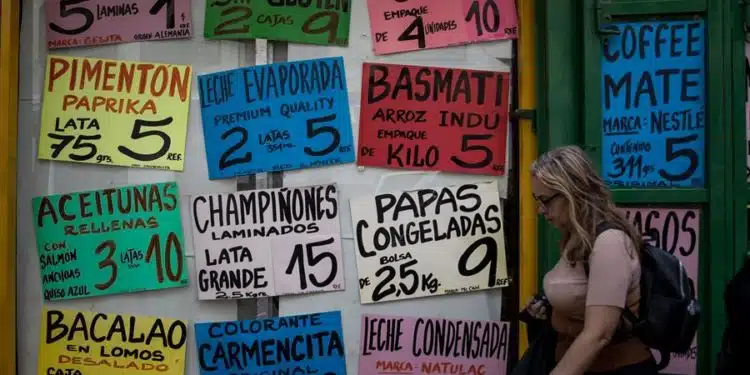 5 LAMINAS 1
MARCA: GELITA ORIGEN ALEMANIA
2 CAJAS 9
EMPAQUE
DE 4 UNIDADES 10
PIMENTON
PAPRIKA
LATA
75 grs. 5 REF.
LECHE EVAPORADA
PREMIUM QUALITY
2 LATAS 5
BASMATI
ARROZ INDU
EMPAQUE
KILO 5 REF.
COFFEE
MATE
MARCA: NESTLÉ
CONTENIDO
311grs 5
ORIGINAL
ACEITUNAS
RELLENAS
CON
SALMON
ANCHOAS
QUESO AZUL
3 LATAS 10
CHAMPIÑONES
LAMINADOS
LATA
GRANDE 15
2.5 KG
PAPAS
CONGELADAS
BOLSA
DE 2,5 Kg. 9
BACALAO
EN LOMOS
DESALADO
CAJA
COLORANTE
CARMENCITA
LECHE CONDENSADA
MARCA: NATULAC